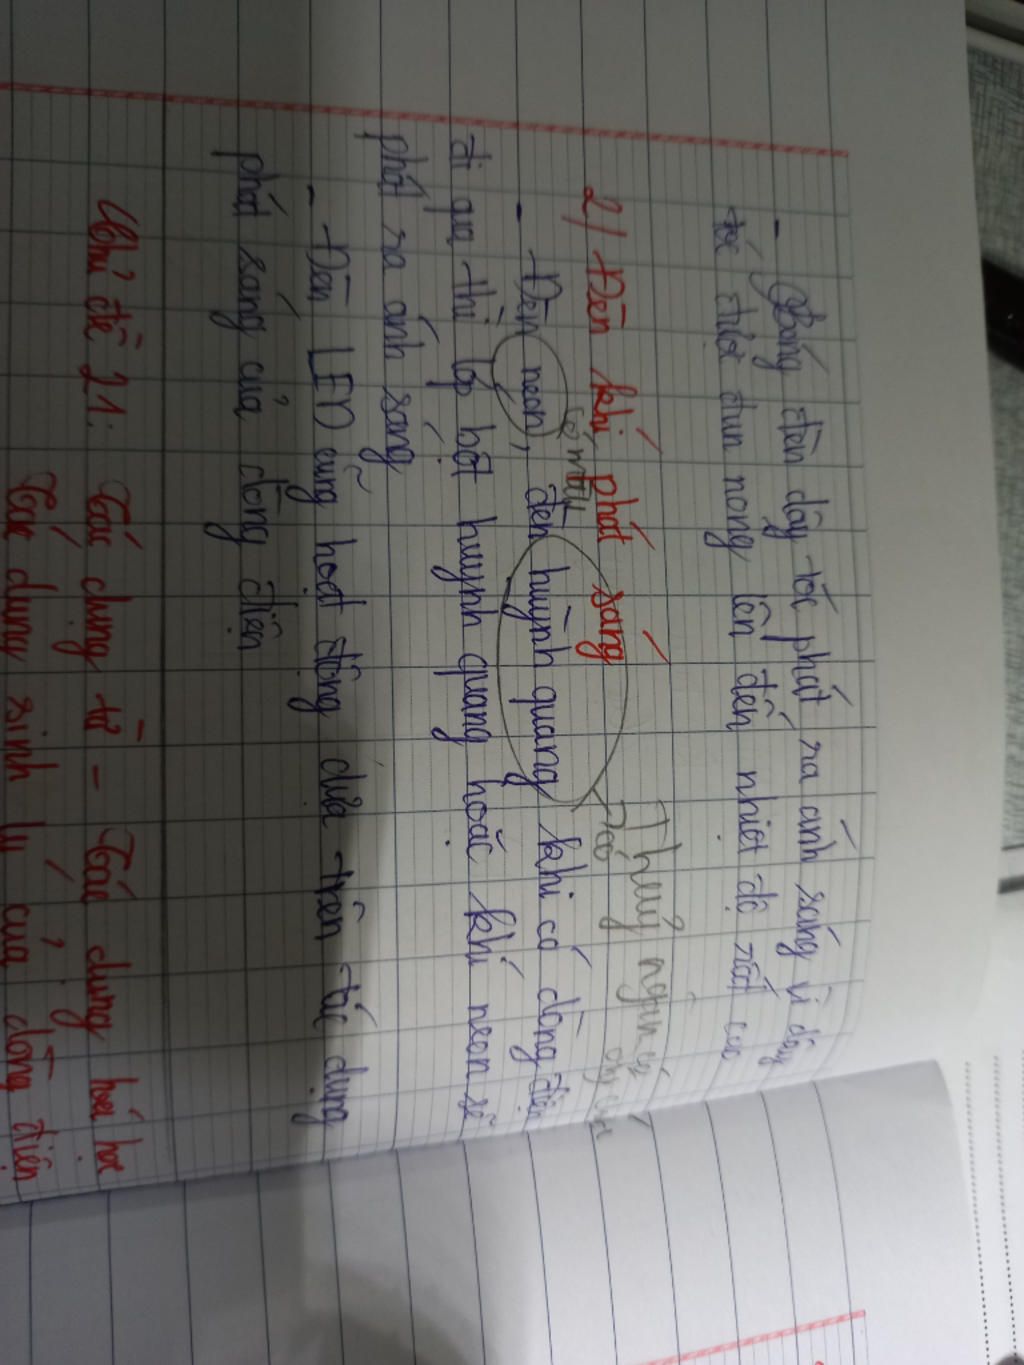 - Bóng đèn dây tóc phát ra ánh sáng vì dây
tóc đun nóng lên đến nhiệt độ rất cao
2/ Đèn khí phát sáng
thuỷ ngân
có màu
có
- Đèn neon, đèn huỳnh quang khi có dòng điện
đi qua thì lớp bột huỳnh quang hoặc khí neon sẽ
phát ra ánh sáng
- Đèn LED cũng hoạt động dựa trên tác dụng
phát sáng của dòng điện
Chủ đề 21: Tác dụng từ - Tác dụng hoá học
Tác dụng sinh lý của dòng điện